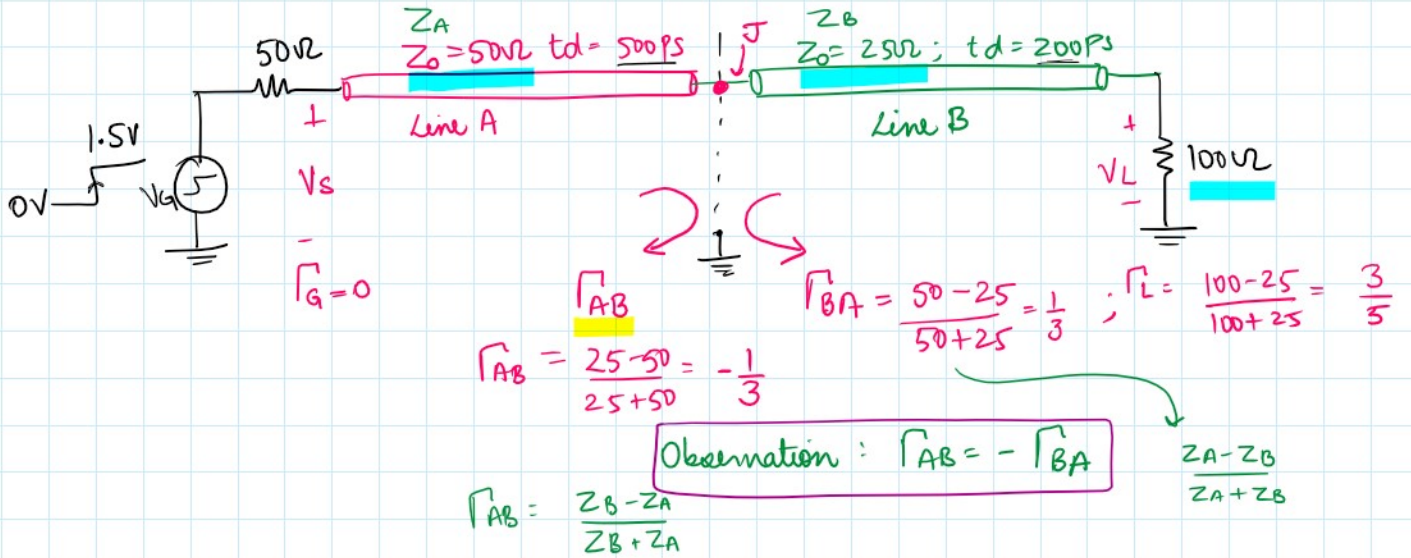 Z_A
Z_B
50Ω
Z₀ = 50Ω td = 500ps
J
Z₀ = 25Ω ; td = 200Ps
+
Line A
Line B
1.5V
0V
V_G
V_S
-
+
V_L
-
100Ω
Γ_G = 0
Γ_AB
Γ_BA = (50 - 25)/(50 + 25) = 1/3 ; Γ_L = (100 - 25)/(100 + 25) = 3/5
Γ_AB = (25 - 50)/(25 + 50) = -1/3
Observation : Γ_AB = - Γ_BA
(Z_A - Z_B)/(Z_A + Z_B)
Γ_AB = (Z_B - Z_A)/(Z_B + Z_A)